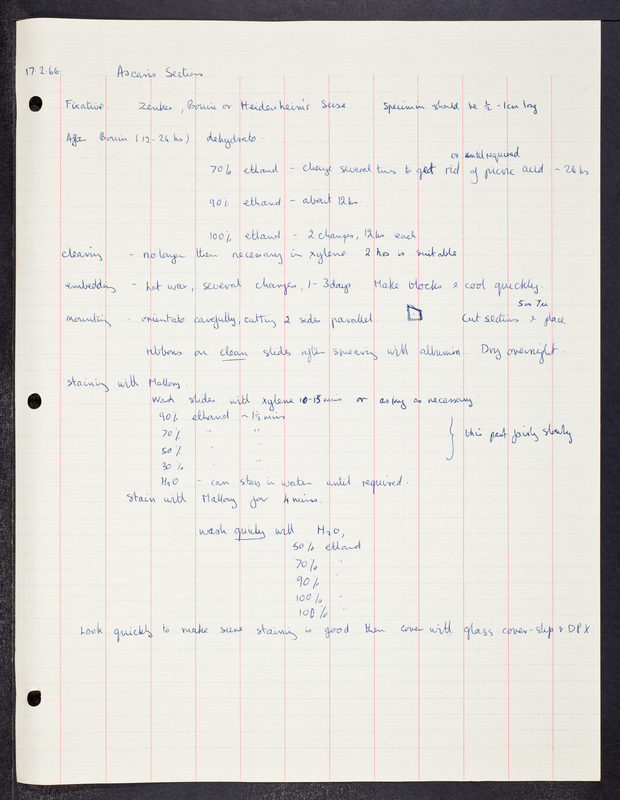 17.2.66 Ascaris Sections.
Fixative. Zenker, Bouin or Heidenheim's Susa Specimen should be ½ - 1cm long
After Bouin (12-24 hrs) dehydrate.
or until required
70% ethanol - change several times to get rid of picric acid ~ 24 hs
90% ethanol - about 12 hs.
100% ethanol - 2 changes, 12 hs each
clearing - no longer than necessary in xylene. 2 hrs is suitable
embedding - hot wax, several changes, 1-3 days Make blocks & cool quickly.
5 or 7µ
mounting - orientate carefully, cutting 2 sides parallel. Cut sections & place
ribbons on clean slides after smearing with albumin. Dry overnight.
staining with Mallory.
Wash slides with xylene 10-15 mins or as long as necessary
90% ethanol ~ 1½ mins
70% " "
50% " " } this part fairly slowly
30% " "
H₂O - can stay in water until required.
Stain with Mallory for 4 mins.
wash quickly with H₂O,
50% ethanol
70% "
90% "
100% "
100% "
Look quickly to make sure staining is good then cover with glass cover-slip & DPX